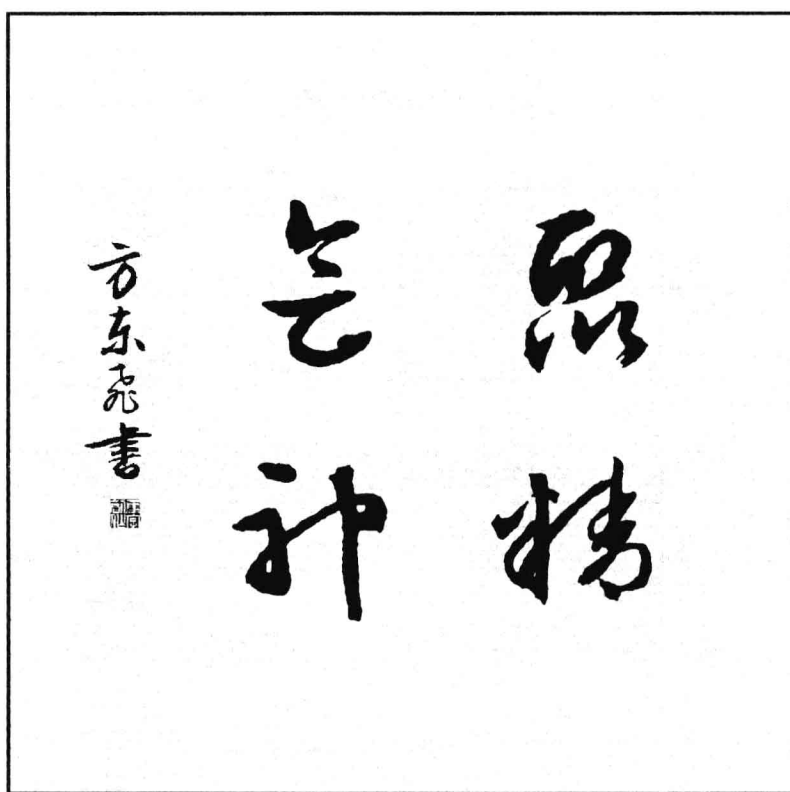 聚精
会神
方东飞書